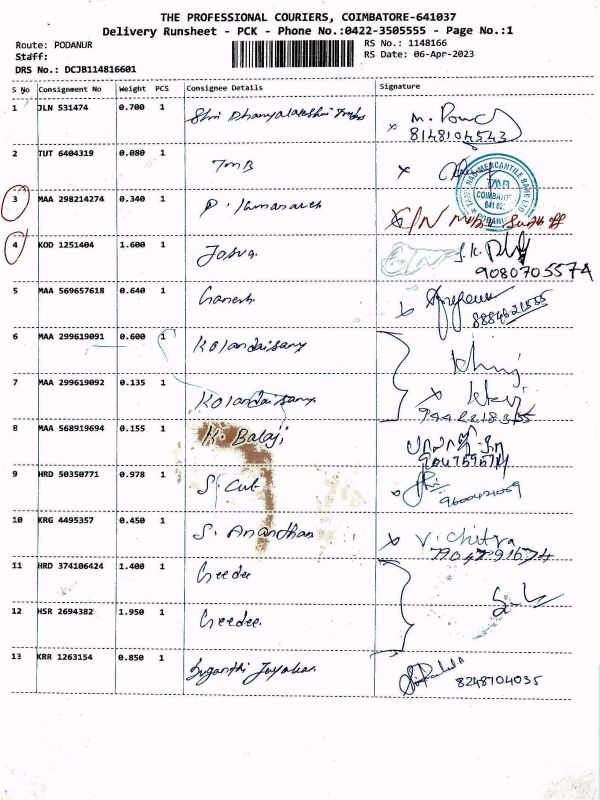 THE PROFESSIONAL COURIERS, COIMBATORE-641037
Delivery Runsheet - PCK - Phone No.:0422-3505555 - Page No.:1
Route: PODANUR RS No.: 1148166
Staff: RS Date: 06-Apr-2023
DRS No.: DCJB114816601
S No Consignment No Weight PCS Consignee Details Signature
1 JLN 531474 0.700 1 Shri Dhanyalakshmi
8148104543
2 TUT 6404319 0.080 1 TMB
TMB
COIMBATORE
3 MAA 298214274 0.340 1 P. Kumaravel
4 KOD 1251404 1.600 1 Josva.
9080705574
5 MAA 569657618 0.640 1 Ganesh
6 MAA 299619091 0.600 1 Kolandaisamy
7 MAA 299619092 0.135 1 Kolandaisamy
8 MAA 568919694 0.155 1 K. Balaji
9 HRD 50350771 0.978 1 S. Cut
10 KRG 4495357 0.450 1 S. Anandhan V. Chitra
11 HRD 374106424 1.400 1 Geedee
12 HSR 2694382 1.950 1 Geedee.
13 KRR 1263154 0.850 1 Suganthi Jayakar
8248704035